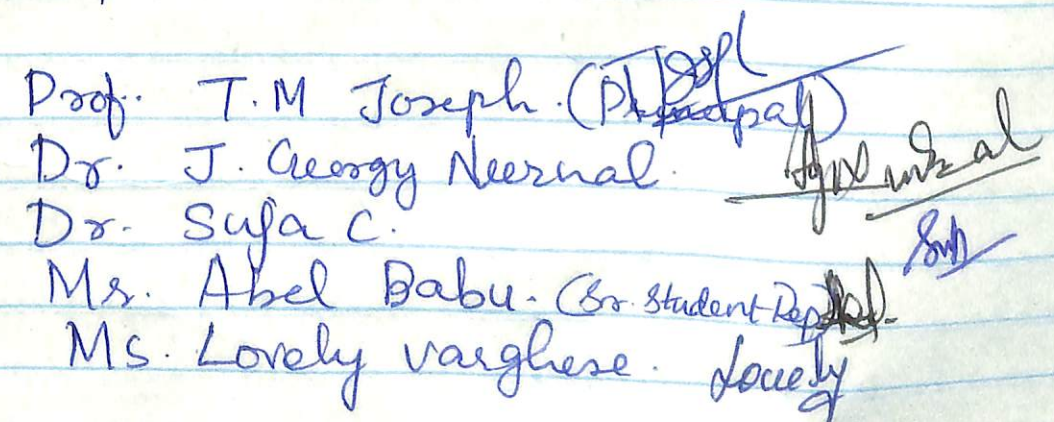 Prof. T.M Joseph. (Principal)
Dr. J. Georgy Neernal.
Dr. Suja C.
Mr. Abel Babu. (Sr. Student Rep).
Ms. Lovely varghese. Lovely